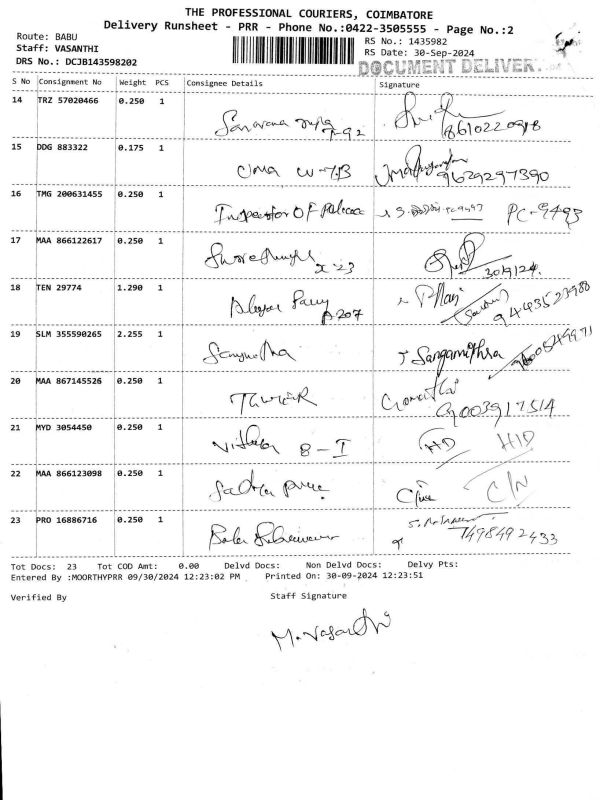 THE PROFESSIONAL COURIERS, COIMBATORE
Delivery Runsheet - PRR - Phone No.:0422-3505555 - Page No.:2
Route: BABU
Staff: VASANTHI
DRS No.: DCJB143598202
RS No.: 1435982
RS Date: 30-Sep-2024
DOCUMENT DELIVER
S No Consignment No Weight PCS Consignee Details Signature
14 TRZ 57020466 0.250 1
8610220918
15 DDG 883322 0.175 1 Uma
9629297390
16 TMG 200631455 0.250 1 Inspector OF Police PC-9493
17 MAA 866122617 0.250 1
30/9/24
18 TEN 29774 1.290 1 A207
9443523988
19 SLM 355590265 2.255 1 Sangamithra
20 MAA 867145526 0.250 1
9003917514
21 MYD 3054450 0.250 1 8-I HD HID
22 MAA 866123098 0.250 1 C/N
23 PRO 16886716 0.250 1 Bala
7498492433
Tot Docs: 23 Tot COD Amt: 0.00 Delvd Docs: Non Delvd Docs: Delvy Pts:
Entered By :MOORTHYPRR 09/30/2024 12:23:02 PM Printed On: 30-09-2024 12:23:51
Verified By Staff Signature
M. Vasanthi